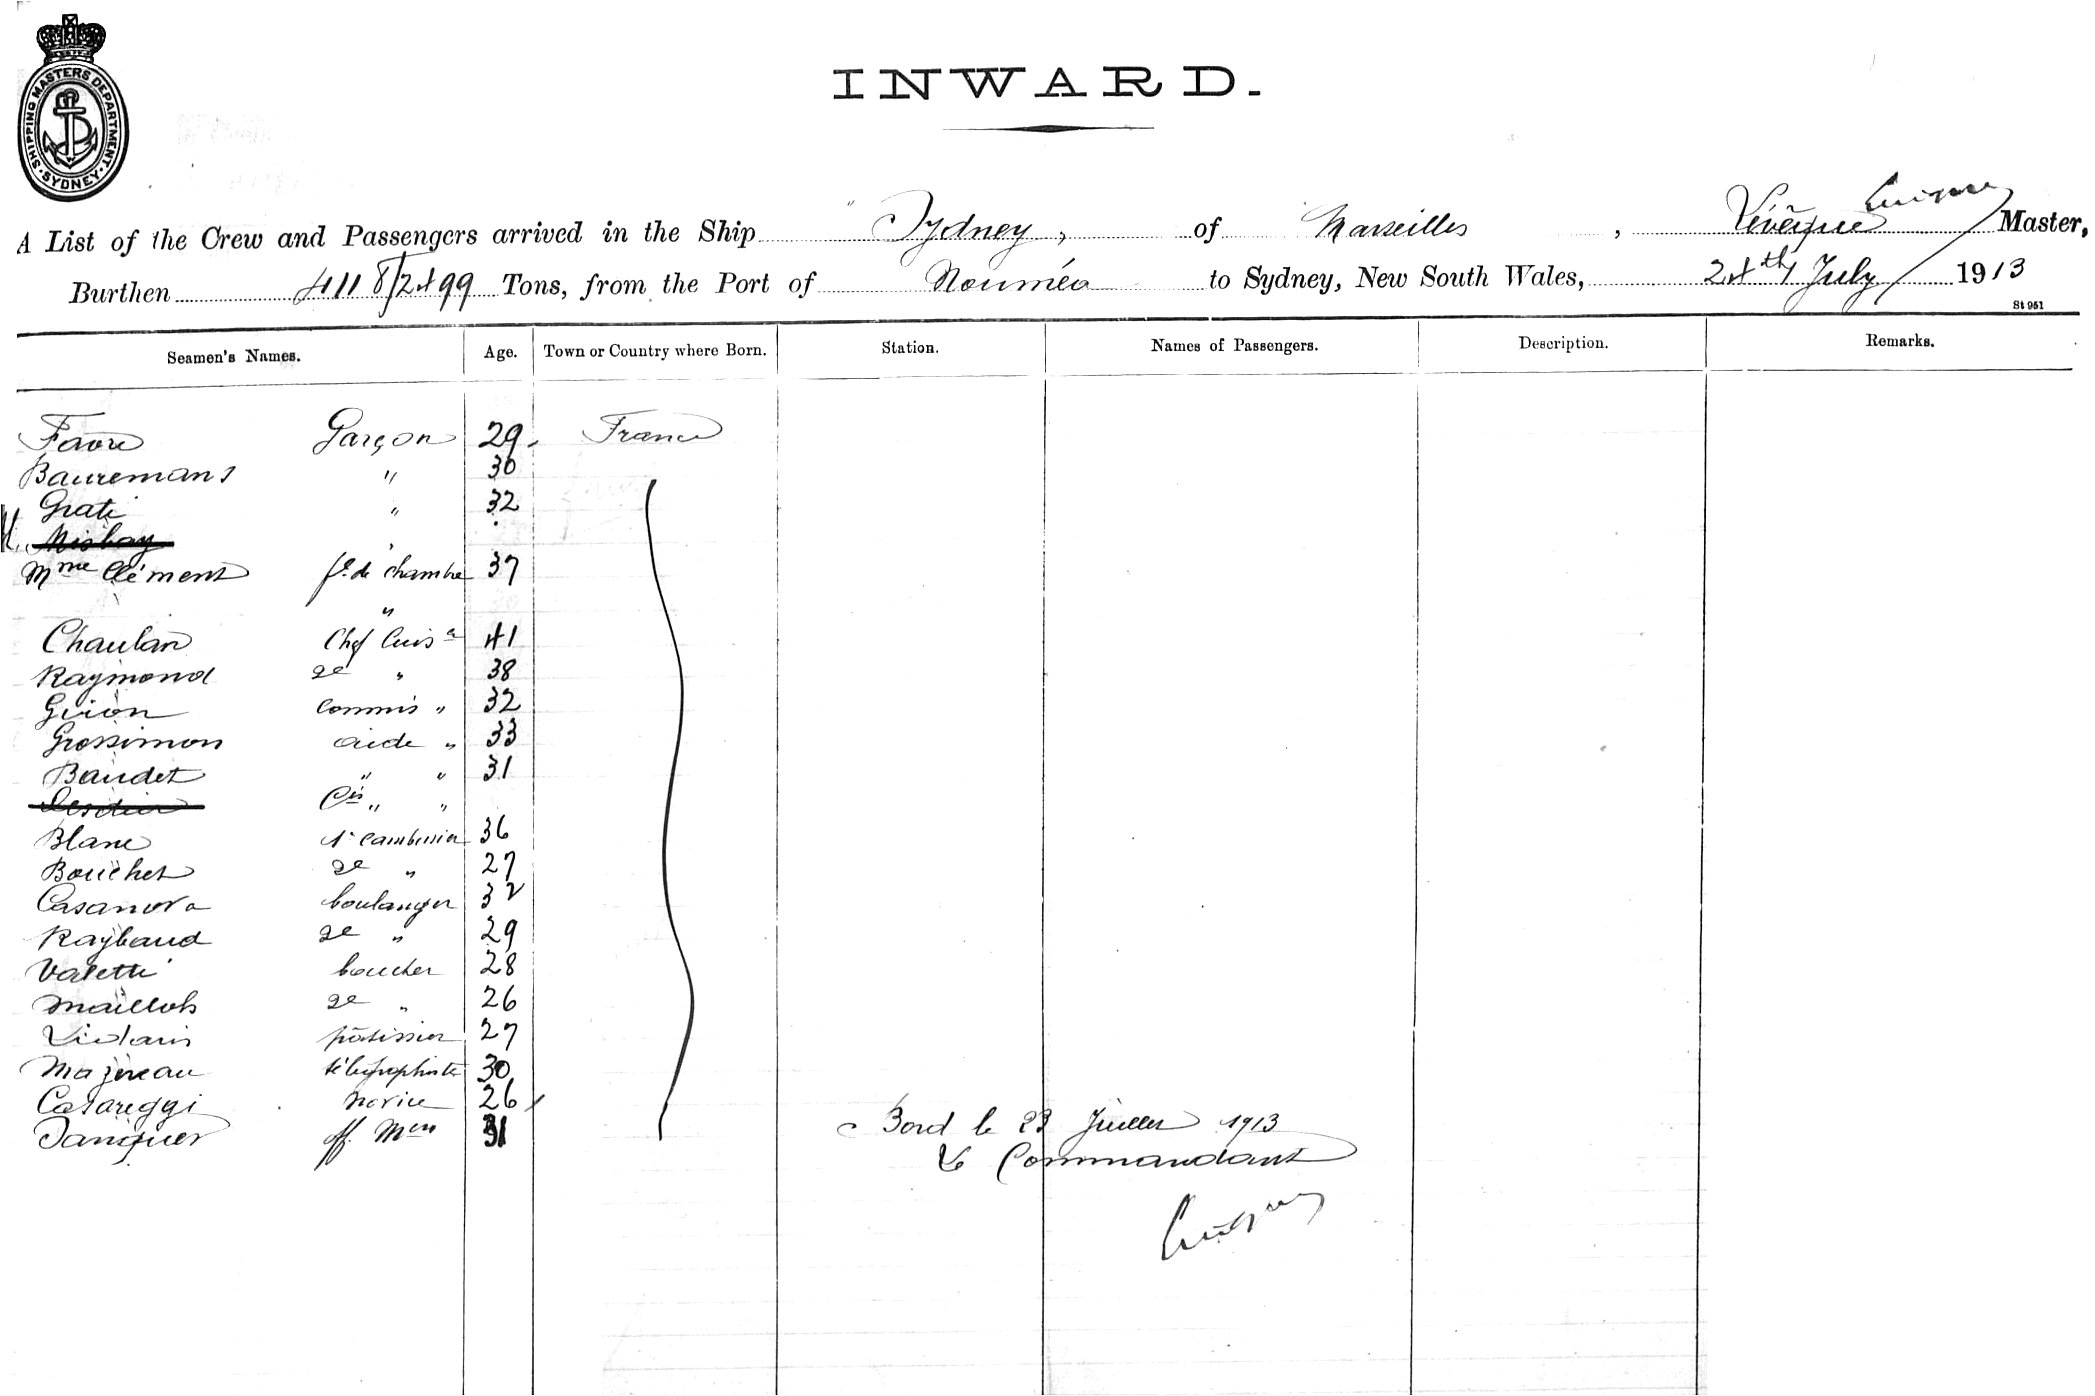 SHIPPING MASTERS DEPARTMENT. SYDNEY.
INWARD.
A List of the Crew and Passengers arrived in the Ship " Sydney, of Marseilles, Lévêque Master,
Burthen 4118/2499 Tons, from the Port of Nouméa to Sydney, New South Wales, 24th July 1913
St 951
Seamen's Names. Age. Town or Country where Born. Station. Names of Passengers. Description. Remarks.
Favre Garçon 29 France
Bauremans " 30
Grati " 32
Mme Clément fe. de chambre 37
"
Chaulan Chef Cuisr 41
Raymond 2e " 38
Giron Commis " 32
Grossimon aide " 33
Baudet " " 31
" "
Blanc 1r cambusier 36
Bouchet 2e " 27
Casanova boulanger 32
Raybaud 2e " 29
Valetti boucher 28
Maillot 2e " 26
pâtissier 27
Majereau télégraphiste 30
Casareggi novice 26
off. Men 31
Bord le 23 Juillet 1913
Le Commandant